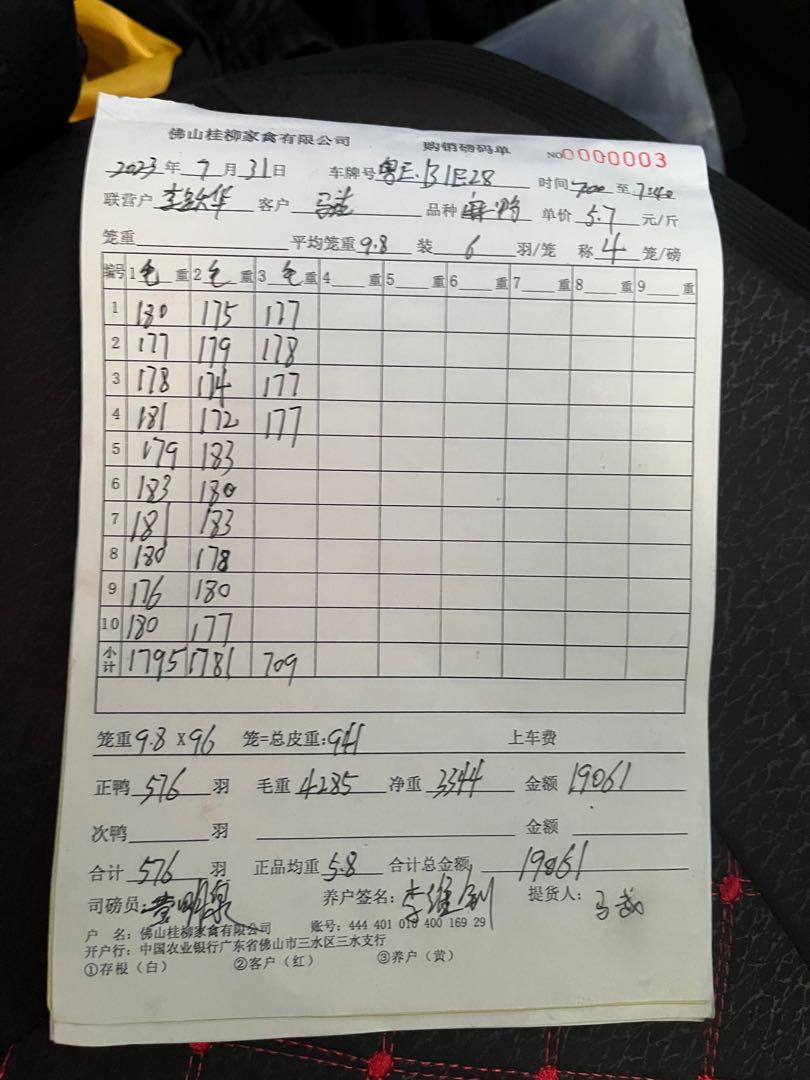 佛山桂柳家禽有限公司 购销磅码单 NO0000003
2023年7月31日 车牌号粤E·B1E28 时间7:00至7:40
联营户 客户 品种麻鸭 单价5.7元/斤
笼重 平均笼重9.8 装6羽/笼 称4笼/磅
编号 1毛重 2毛重 3毛重 4重 5重 6重 7重 8重 9重
1 180 175 177
2 177 179 178
3 178 174 177
4 181 172 177
5 179 183
6 183 180
7 181 183
8 180 178
9 176 180
10 180 177
小计 1795 1781 709
笼重9.8X96笼=总皮重:941 上车费
正鸭576羽 毛重4285 净重3344 金额19061
次鸭羽 金额
合计576羽 正品均重5.8 合计总金额19061
司磅员: 养户签名: 提货人:
户 名:佛山桂柳家禽有限公司 账号:444 401 010 400 169 29
开户行:中国农业银行广东省佛山市三水区三水支行
①存根(白) ②客户(红) ③养户(黄)